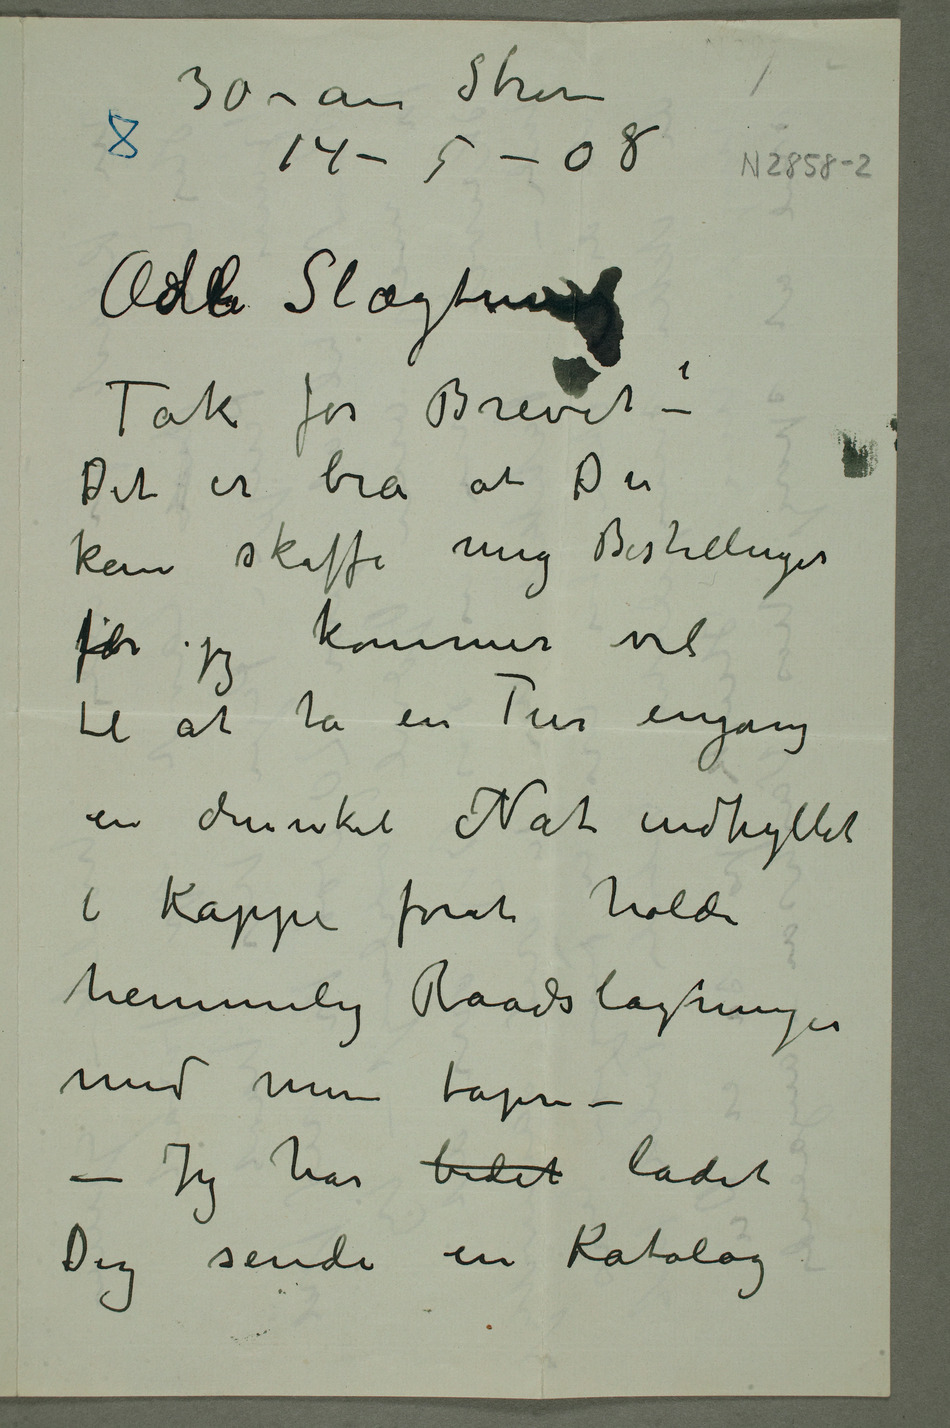 30 – am Strom
14 – 5 – 08
8
N 2858-2
Ædle Slægtning
Tak for Brevet –
Det er bra at Du
kan skaffe mig Bestillinger
før jeg kommer vel
til at ta en Tur engang
en dunkel Nat indhyllet
i Kappe forat holde
hemmelig Raadslagninger
med mine tapre –
– Jeg har bedet ladet
Dig sende en Katalog